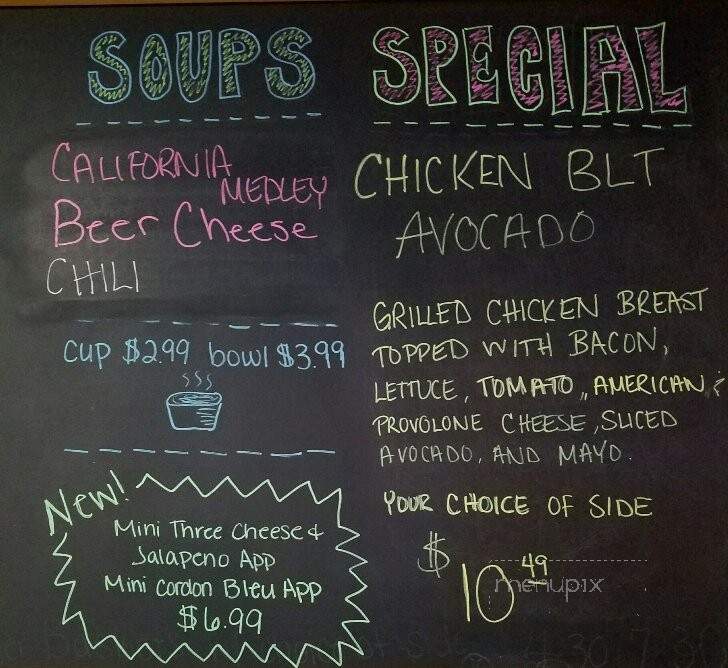 SOUPS
CALIFORNIA
MEDLEY
Beer Cheese
CHILI
cup $2.99 bowl $3.99
New!
Mini Three Cheese &
Jalapeno App
Mini Cordon Bleu App
$6.99
SPECIAL
CHICKEN BLT
AVOCADO
GRILLED CHICKEN BREAST
TOPPED WITH BACON,
LETTUCE, TOMATO, AMERICAN &
PROVOLONE CHEESE, SLICED
AVOCADO, AND MAYO.
YOUR CHOICE OF SIDE
$10.49
menupix